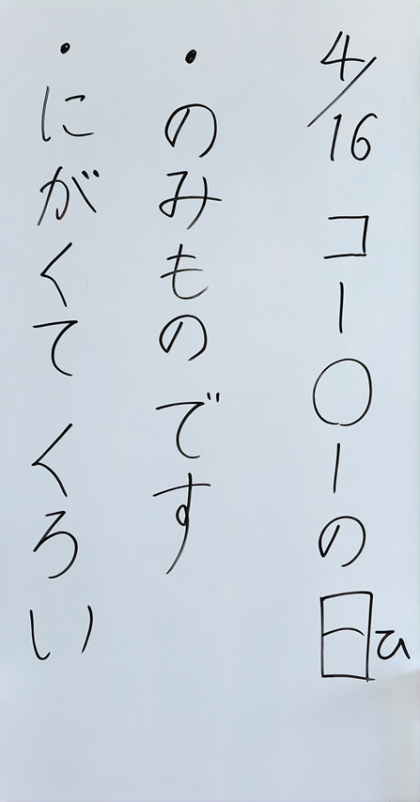 4/16 コー〇ーの日
ひ
・のみものです
・にがくて くろい